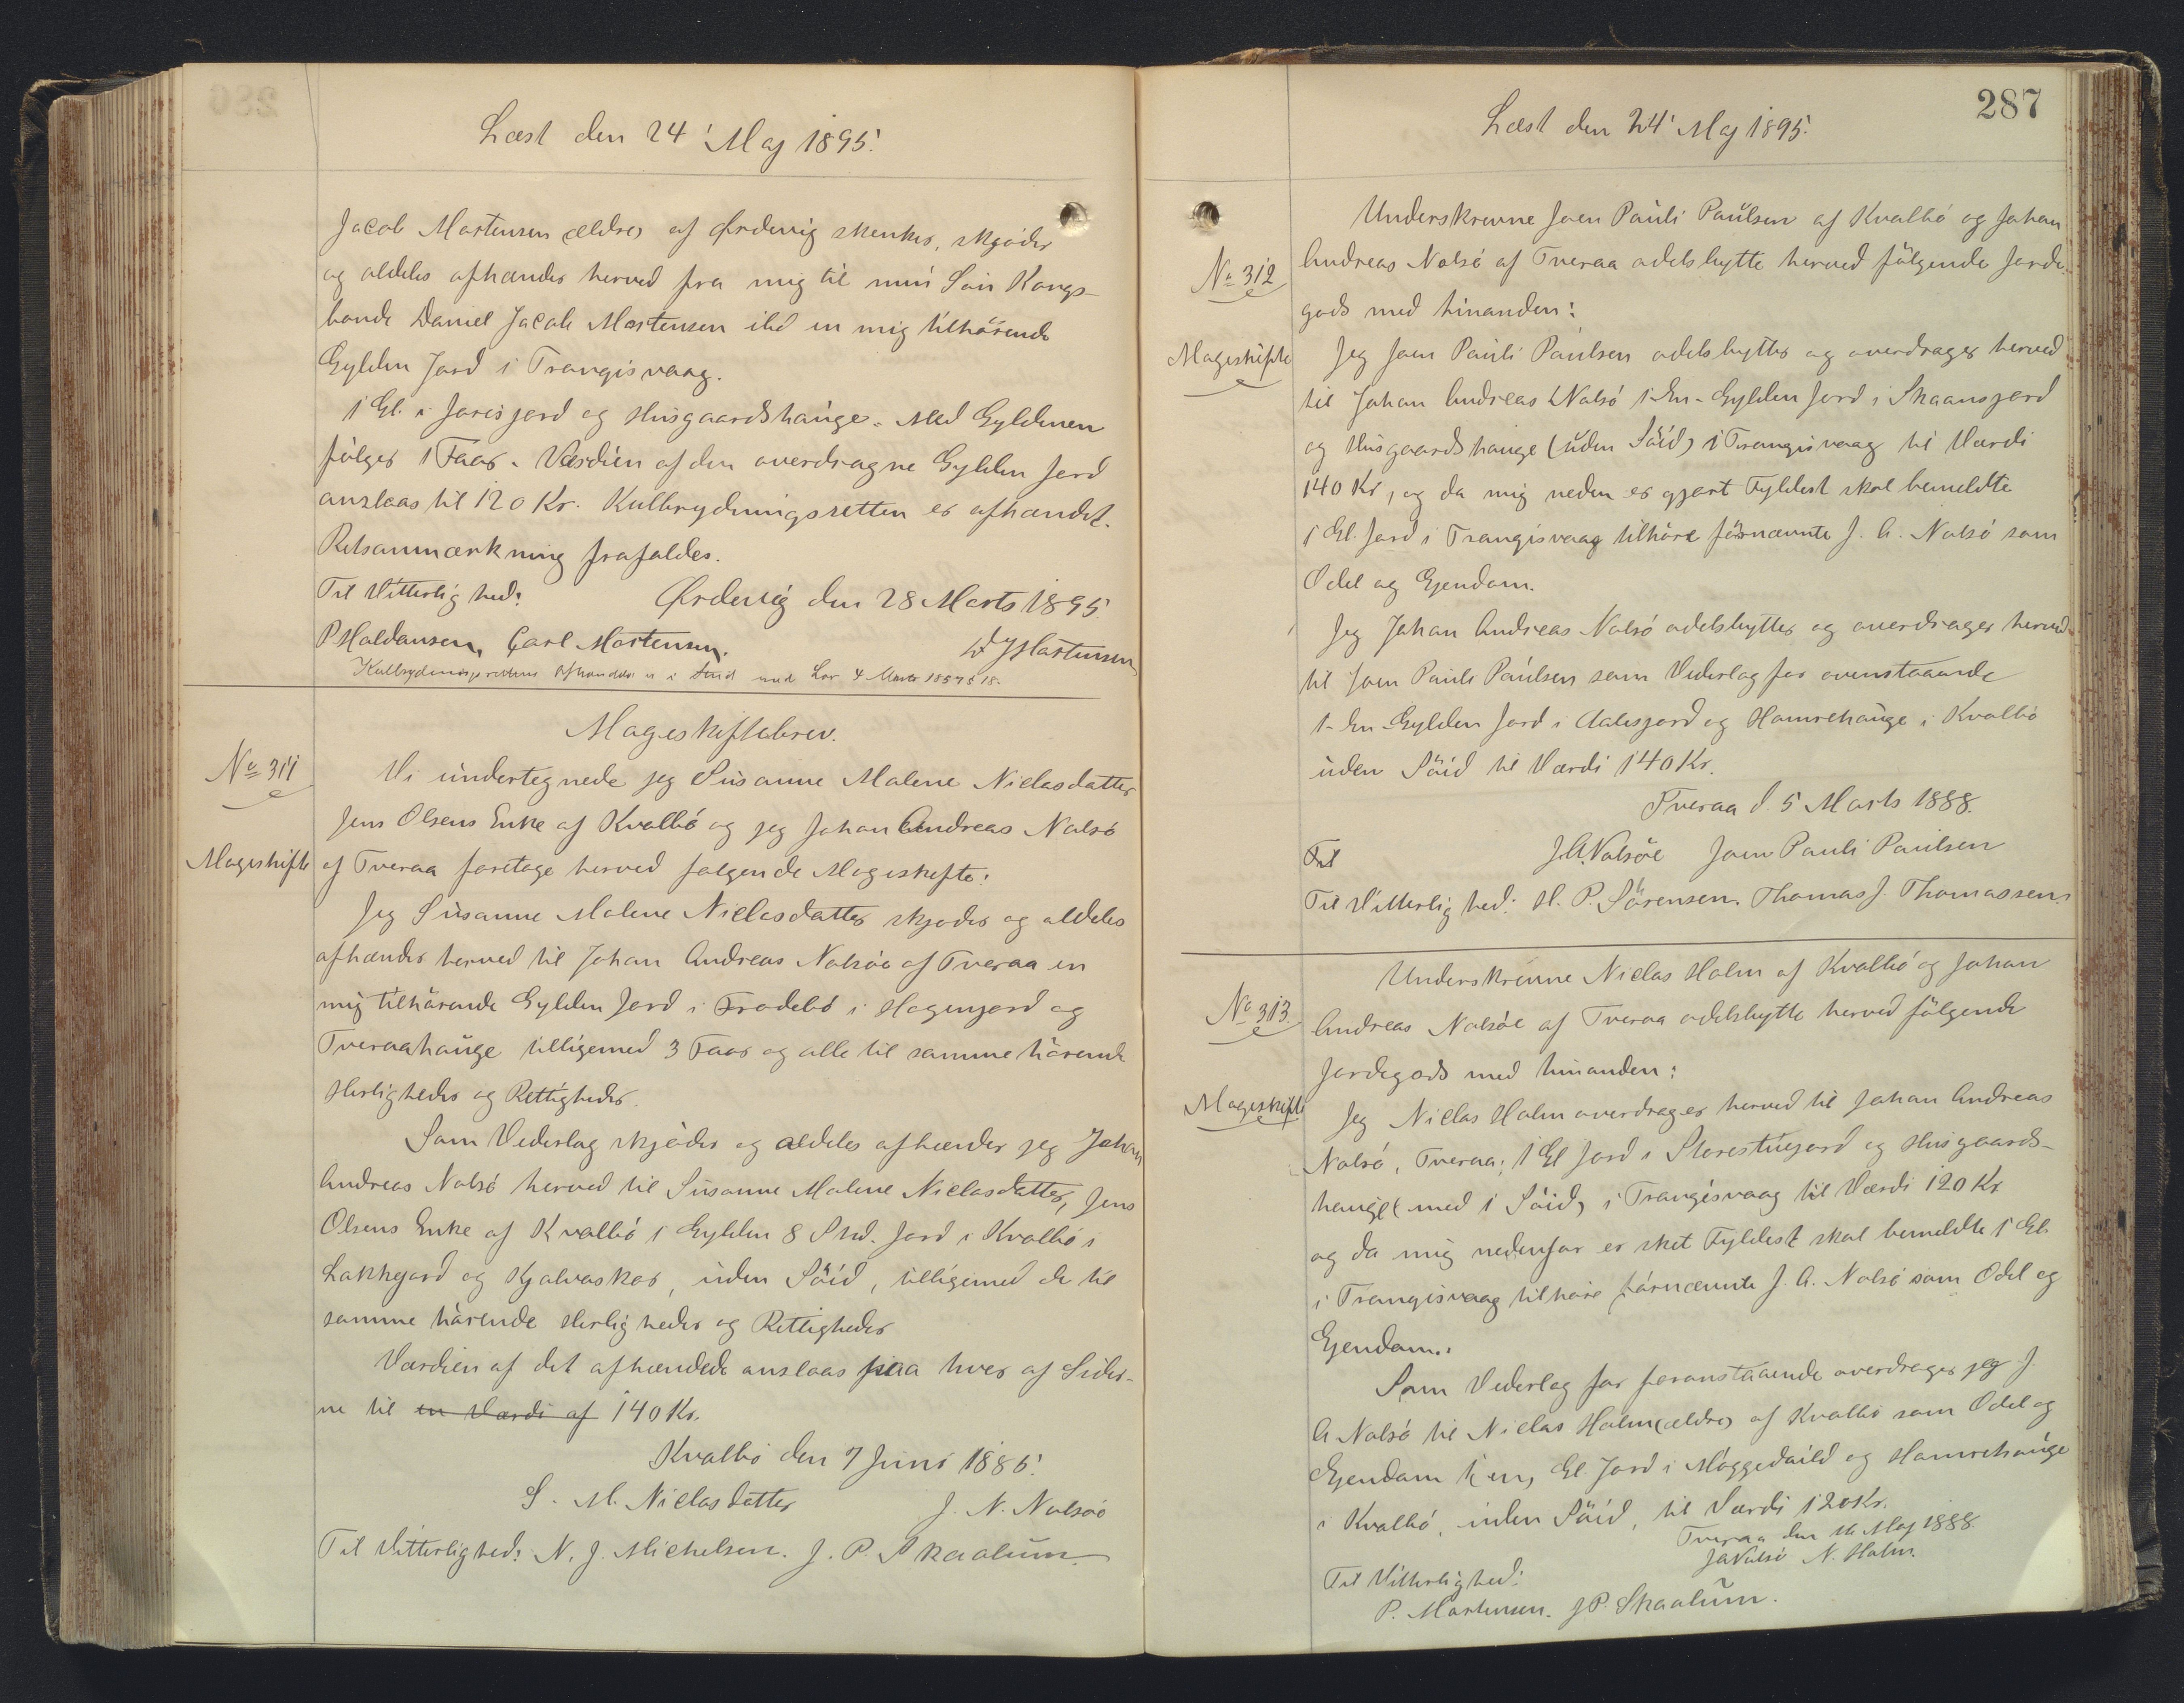 Læst den 24' Maj 1895.
Jacob Mortensen (ældre) af Ørdevig skenker, skjøder
og aldeles afhænder herved fra mig til min Søn Kongs-
bonde Daniel Jacob Mortensen ibd en mig tilhørende
Gylden Jord i Trangisvaag.
1 Gl. i Jarisjord og Husgaardshauge. Med Gyldenen
følger 1 Faar. Værdien af den overdragne Gylden Jord
anslaas til 120 Kr. Kulbrydningsretten er afhændet.
Retsanmærkning frafaldes.
Til Vitterlighed: Ørdevig den 28 Marts 1895
P Holdansen, Carl Mortensen. DJMortensen
Kulbrydningsrettens Afhændelse er i Strid med Lov 4 Marts 1857 § 18.
Mageskiftebrev.
No 311
Vi undertegnede jeg Susanne Malene Niclasdatter
Jens Olsens Enke af Kvalbø og jeg Johan Andreas Nolsø
Mageskifte af Tveraa foretage herved følgende Mageskifte:
Jeg Susanne Malene Niclasdatter skjøder og aldeles
afhænder herved til Johan Andreas Nolsøe af Tveraa en
mig tilhørende Gylden Jord i Frodebø i Hogenjord og
Tveraahauge tilligemed 3 Faar og alle til samme hørende
Herligheder og Rettigheder.
Som Vederlag skjøder og aldeles afhænder jeg Johan
Andreas Nolsø herved til Susanne Malene Niclasdatter, Jens
Olsens Enke af Kvalbø 1 Gylden 8 Skd. Jord i Kvalbø i
Lakkejord og Kjalvaskor, uden Söid, tilligemed de til
samme hørende Herligheder og Rettigheder
Værdien af det afhændede anslaas paa hver af Sider-
ne til en Værdi af 140 Kr.
Kvalbø den 7 Juni 1886.
S. M. Niclasdatter J. N. Nolsøe
Til Vitterlighed: N. J. Michelsen. J. P. Skaalum.
287
Læst den 24' Maj 1895.
Underskrevne Joen Pauli Paulsen af Kvalbø og Johan
No 312 Andreas Nolsø af Tveraa odelsbytte herved følgende Jorde-
gods med hinanden:
Mageskifte Jeg Joen Pauli Paulsen odelsbytter og overdrager herved
til Johan Andreas Nolsø 1-En-Gylden Jord i Skaansjord
og Husgaardshauge (uden Söid) i Trangisvaag til Værdi
140 Kr, og da mig neden er gjort Fyldest skal bemeldte
1 Gl. Jord i Trangisvaag tilhøre førnævnte J. A. Nolsø som
Odel og Ejendom.
Jeg Johan Andreas Nolsø odelsbytter og overdrager herved
til Joen Pauli Paulsen som Vederlag for ovenstaaende
1-En-Gylden Jord i Aalesjord og Hamrehauge i Kvalbø
uden Söid til Værdi 140 Kr.
Tveraa d. 5 Marts 1888.
Til J.A.Nolsøe Joen Pauli Paulsen
Til Vitterlighed: H. P. Sørensen. Thomas J. Thomassen.
Underskrevne Niclas Holm af Kvalbø og Johan
No 313. Andreas Nolsøe af Tveraa odelsbytte herved følgende
Jordegods med hinanden:
Mageskifte Jeg Niclas Holm overdrager herved til Johan Andreas
Nolsø, Tveraa; 1 Gl Jord i Storestuejord og Husgaards-
hauge (med 1 Söid) i Trangisvaag til Værdi 120 Kr
og da mig nedenfor er sket Fyldest skal bemeldte 1 Gl.
i Trangisvaag tilhøre førnævnte J. A. Nolsø som Odel og
Ejendom.
Som Vederlag for foranstaaende overdrager jeg J.
A. Nolsø til Niclas Holm (ældre) af Kvalbø som Odel og
Ejendom 1 (en) Gl. Jord i Møggedaild og Hamrehauge
i Kvalbø, uden Söid, til Værdi 120 Kr.
Tveraa den 16 Maj 1888.
JANolsø N. Holm.
Til Vitterlighed:
P. Mortensen. J.P. Skaalum.